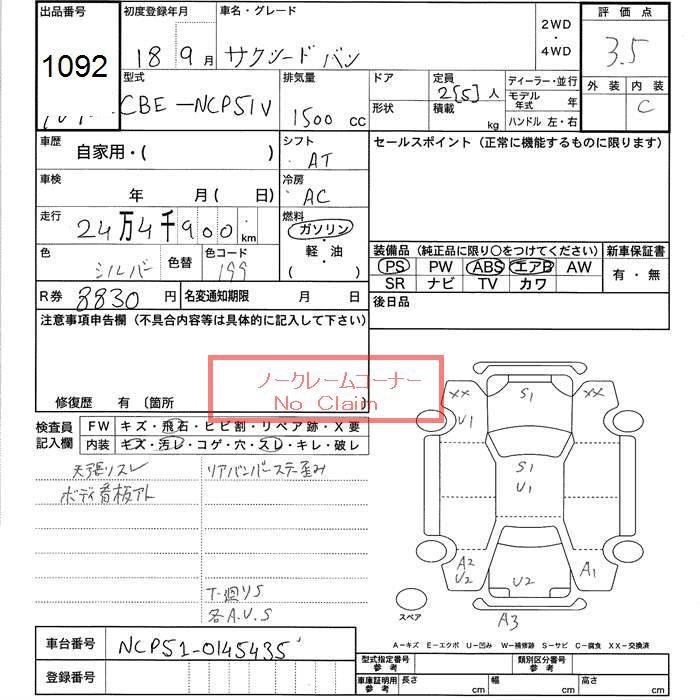 出品番号
1092
初度登録年月
18 9月
車名・グレード
サクシード バン
2WD
・
4WD
評価点
3.5
外装 内装
C
型式
CBE-NCP51V
排気量
1500 cc
ドア
形状
定員
2[5]人
積載
kg
ディーラー・並行
モデル年式 年
ハンドル 左・右
車歴
自家用・( )
シフト
AT
セールスポイント (正常に機能するものに限ります)
車検
年 月( 日)
冷房
AC
走行
24万4千900km
燃料
ガソリン
・
軽・油
( )
色
シルバー
色替
色コード
199
装備品 (純正品に限り○をつけてください)
新車保証書
PS PW ABS エアB AW
SR ナビ TV カワ
有・無
R券 8830円
名変通知期限 月 日
後日品
注意事項申告欄 (不具合内容等は具体的に記入して下さい)
ノークレームコーナー
No Claim
修復歴 有 〔箇所
検査員
記入欄
FW キズ・飛石・ヒビ割・リペア跡・X要
内装 キズ・汚レ・コゲ・穴・スレ・キレ・破レ
天張リスレ
ボディ看板アト
リアバンパーステー歪み
T-廻りS
各A.U.S
XX
U1
S1
XX
S1
U1
A2
U2
U2
A1
A3
スペア
A-キズ E-エクボ U-凹み W-補修跡 S-サビ C-腐食 XX-交換済
車台番号 NCP51-0145435
登録番号
型式指定番号
参考
類別区分番号
参考
車庫証明用
参考
長さ cm
幅 cm
高さ cm